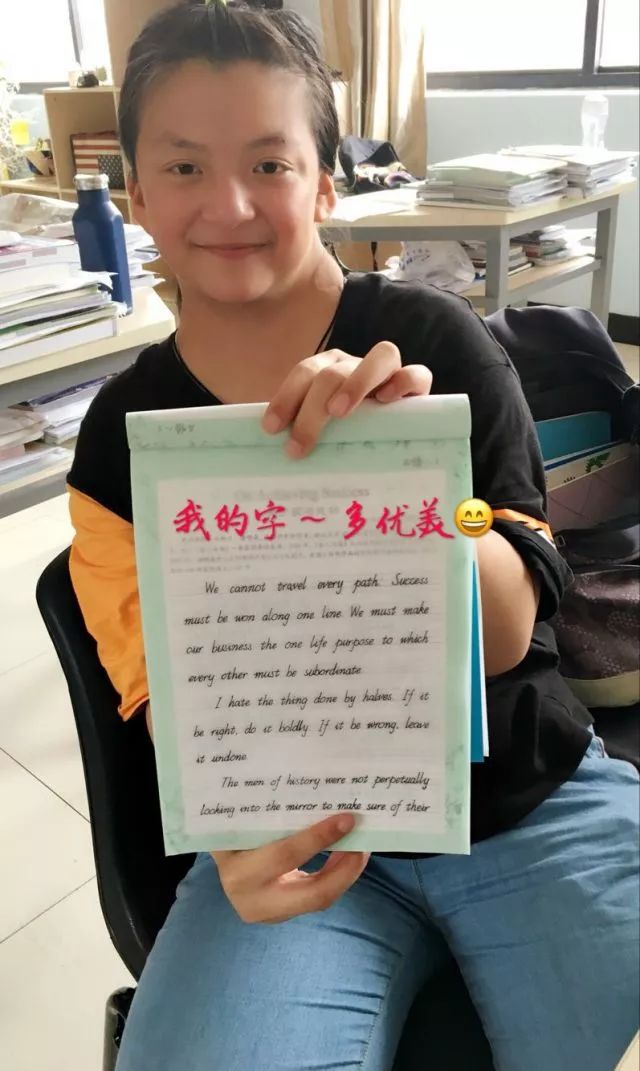 我的字～多优美😄
We cannot travel every path. Success
must be won along one line. We must make
our business the one life purpose to which
every other must be subordinate.
I hate the thing done by halves. If it
be right, do it boldly. If it be wrong, leave
it undone.
The men of history were not perpetually
looking into the mirror to make sure of their